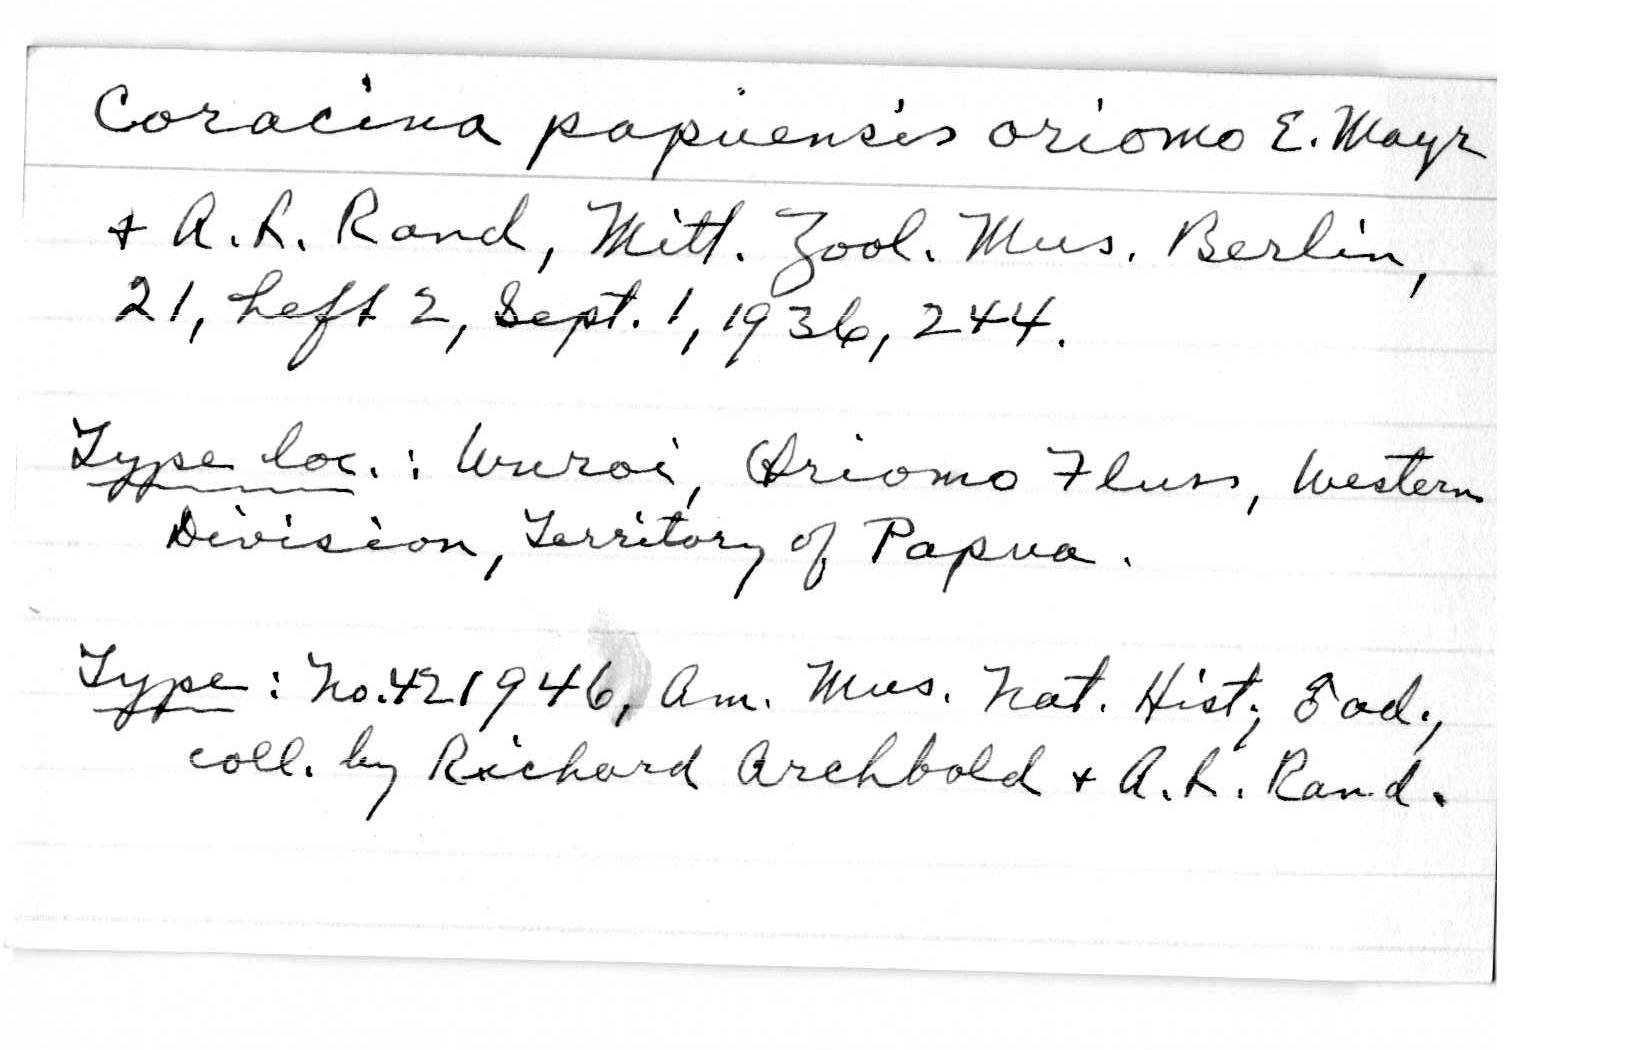 Coracina papuensis oriomo E. Mayr
+ A. L. Rand, Mitt. Zool. Mus. Berlin,
21, heft 2, Sept. 1, 1936, 244.
Type loc.: Wuroi, Oriomo Fluss, Western
Division, Territory of Papua.
Type: No. 421946, Am. Mus. Nat. Hist; ♂ ad.,
coll. by Richard Archbold + A. L. Rand.